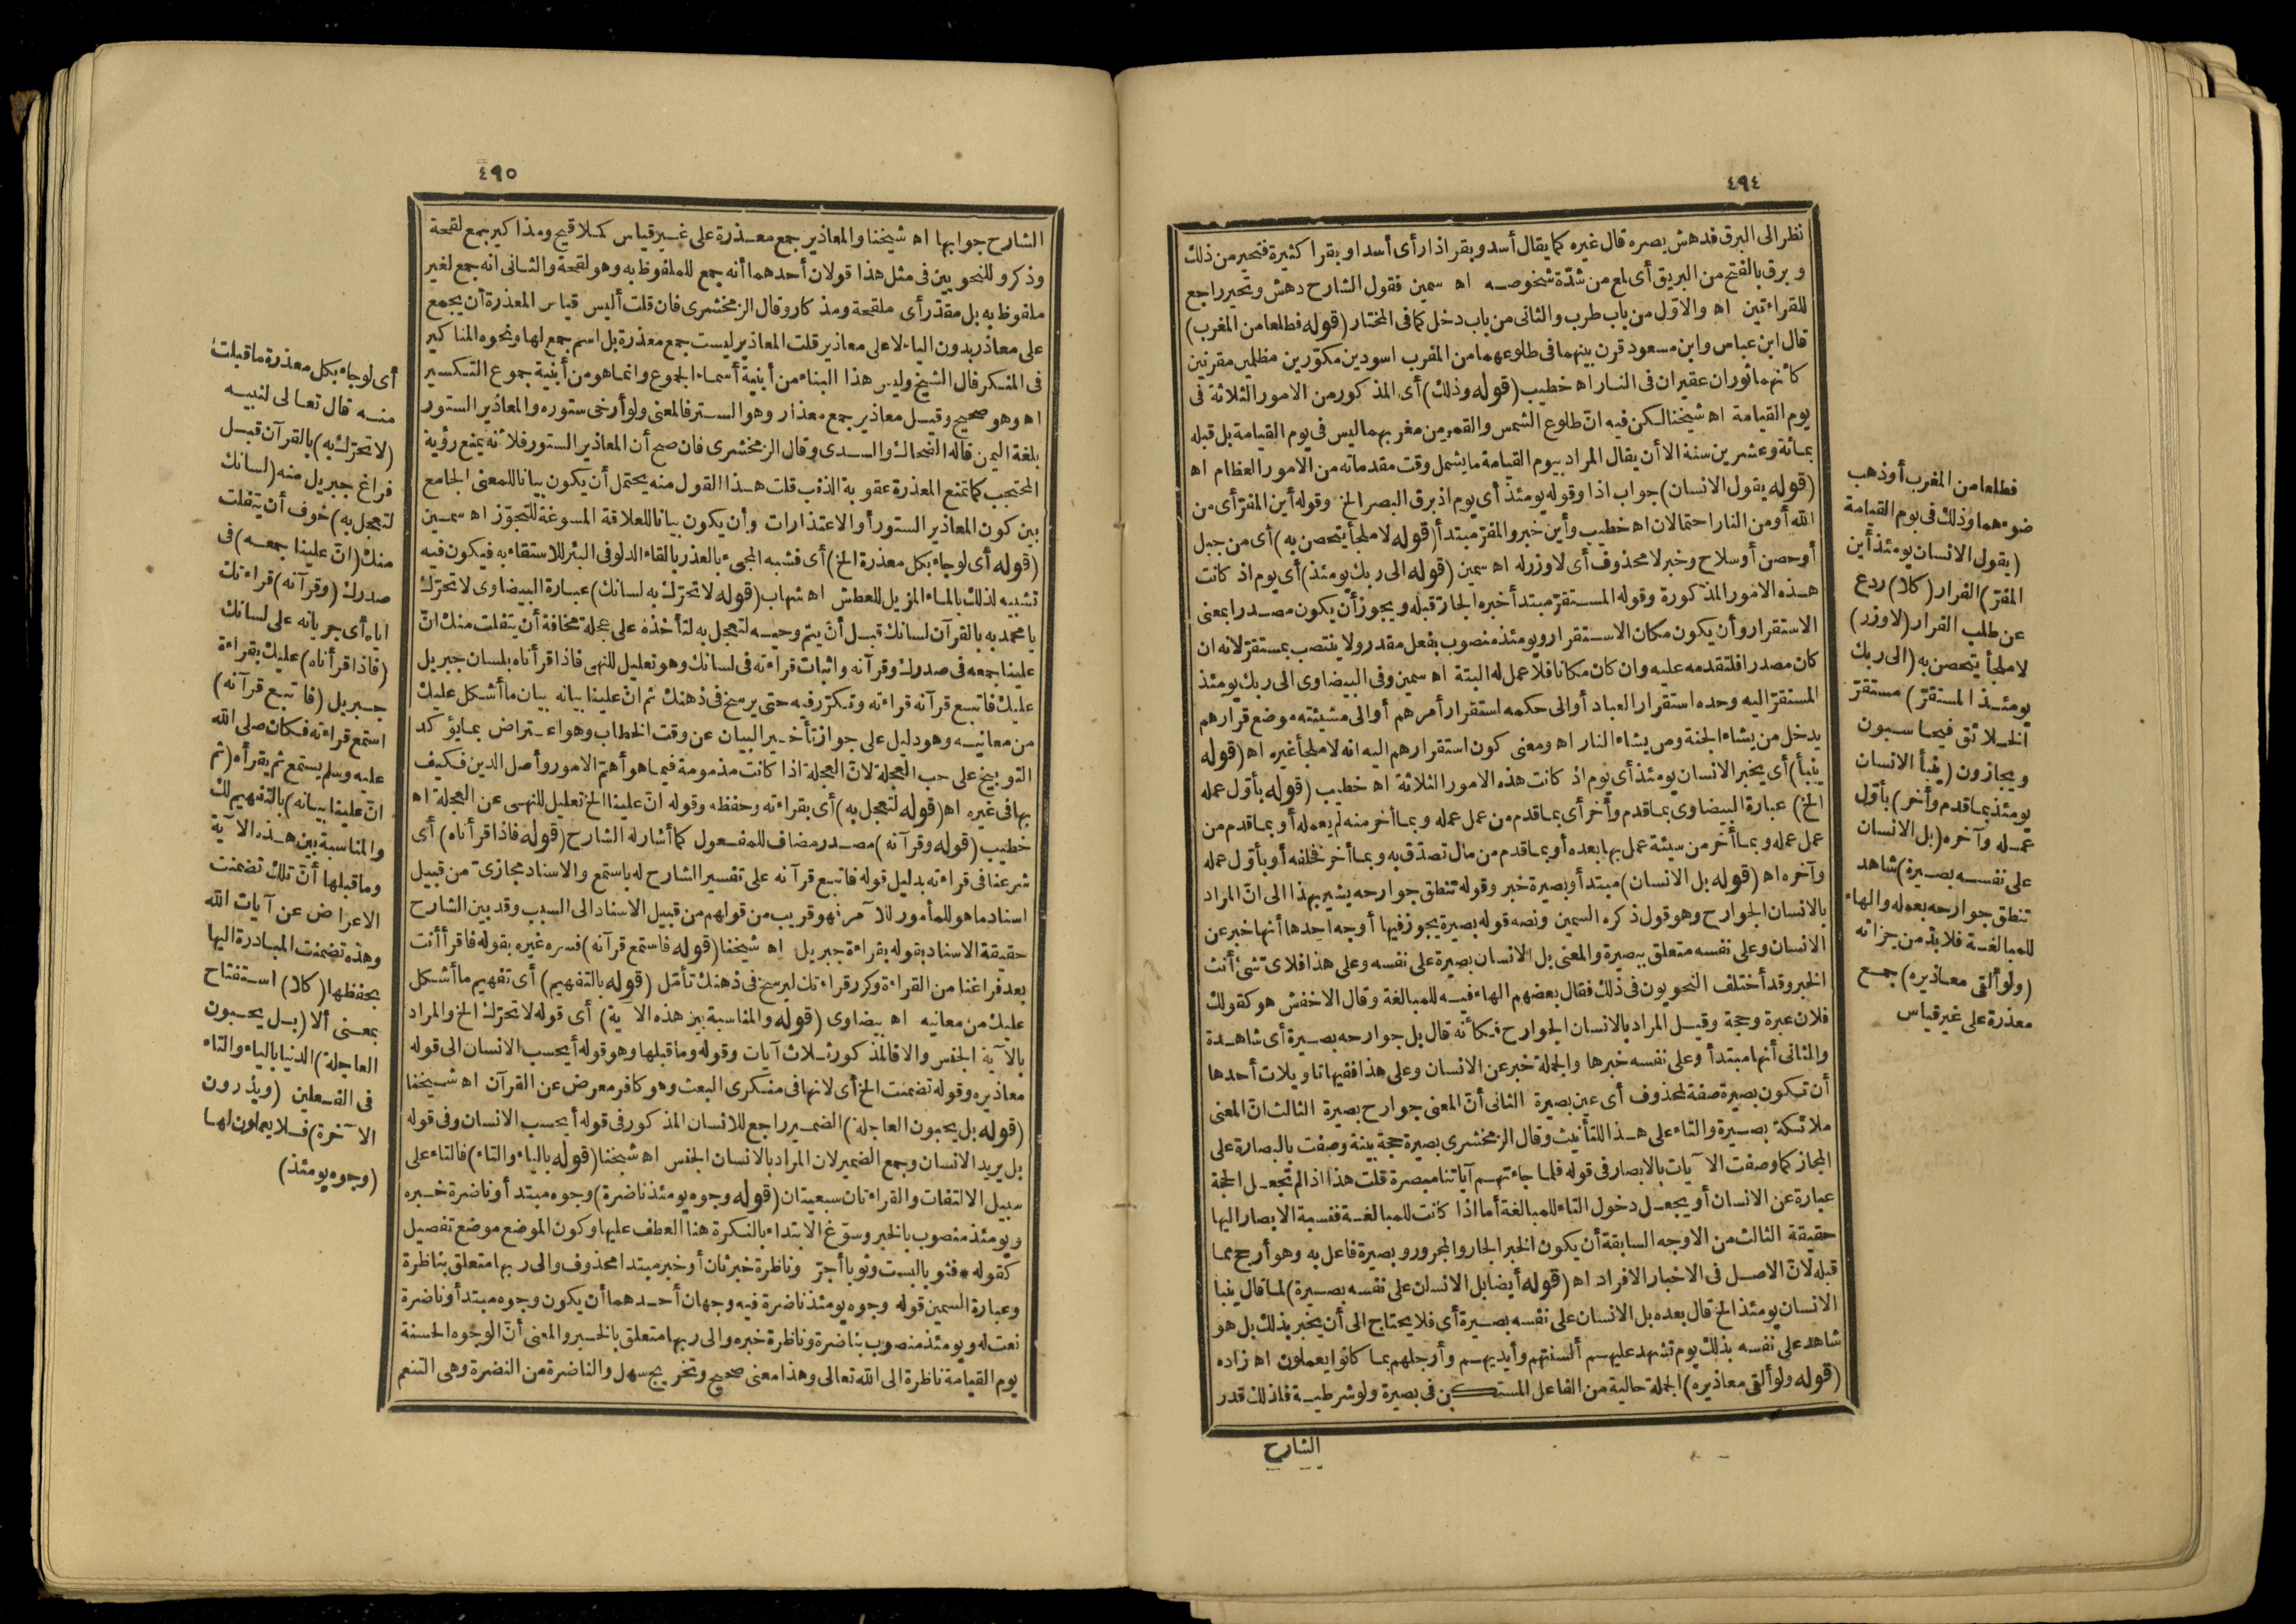 ٤٩٤
نظر الى البرق فدهش بصره قال غيره كما يقال أسد وبقر اذا رأى أسدا وبقرا كثيرة فتحير من ذلك
وبرق بالفتح من البريق أى لمع من شدّة شخوصه اه سمين فقول الشارح دهش وتحير راجع
للقراءتين اه والاوّل من باب طرب والثانى من باب دخل كما فى المختار (قوله فطلعا من المغرب)
قال ابن عباس وابن مسعود قرن بينهما فى طلوعهما من المغرب اسودين مكوّرين مظلمين مقرنين
كأنهما ثوران عقيران فى النار اه خطيب (قوله وذلك) أى المذكور من الامور الثلاثة فى
يوم القيامة اه شيخنا لكن فيه انّ طلوع الشمس والقمر من مغربهما ليس فى يوم القيامة بل قبله
بمائة وعشرين سنة الا أن يقال المراد بيوم القيامة ما يشمل وقت مقدماته من الامور العظام اه
(قوله يقول الانسان) جواب اذا وقوله يومئذ أى يوم اذ برق البصر الخ وقوله أين المفرّ أى من
الله أو من النار احتمالان اه خطيب وأين خبر والمفرّ مبتدأ (قوله لا ملجأ يتحصن به) أى من جبل
أو حصن أو سلاح وخبر لا محذوف أى لا وزر له اه سمين (قوله الى ربك يومئذ) أى يوم اذ كانت
هذه الامور المذكورة وقوله المستقرّ مبتدأ خبره الجارّ قبله ويجوز أن يكون مصدرا بمعنى
الاستقرار وأن يكون مكان الاستقرار ويومئذ منصوب بفعل مقدر ولا ينتصب بمستقرّ لانه ان
كان مصدرا فلتقدمه عليه وان كان مكانا فلا عمل له البتة اه سمين وفى البيضاوى الى ربك يومئذ
المستقرّ اليه وحده استقرار العباد أو الى حكمه استقرار أمرهم أو الى مشيئته موضع قرارهم
يدخل من يشاء الجنة ومن يشاء النار اه ومعنى كون استقرارهم اليه انه لا ملجأ غيره اه (قوله
ينبأ) أى يخبر الانسان يومئذ أى يوم اذ كانت هذه الامور الثلاثة اه خطيب (قوله بأول عمله
الخ) عبارة البيضاوى بما قدم وأخر أى بما قدم من عمل عمله وبما أخر منه لم يعمله أو بما قدم من
عمل عمله وبما أخر من سيئة عمل بها بعده أو بما قدم من مال تصدّق به وبما أخر فخلفه أو بأول عمله
وآخره اه (قوله بل الانسان) مبتدأ وبصيرة خبر وقوله تنطق جوارحه يشير بهذا الى انّ المراد
بالانسان الجوارح وهو قول ذكره السمين ونصه قوله بصيرة يجوز فيها أوجه احدها أنها خبر عن
الانسان وعلى نفسه متعلق ببصيرة والمعنى بل الانسان بصيرة على نفسه وعلى هذا فلاىّ شئ أنث
الخبر وقد أختلف النحويون فى ذلك فقال بعضهم الهاء فيه للمبالغة وقال الاخفش هو كقولك
فلان عبرة وحجة وقيل المراد بالانسان الجوارح فكأنه قال بل جوارحه بصيرة أى شاهدة
والثانى أنها مبتدأ وعلى نفسه خبرها والجملة خبر عن الانسان وعلى هذا ففيها تاويلات أحدها
أن تكون بصيرة صفة لمحذوف أى عين بصيرة الثانى أنّ المعنى جوارح بصيرة الثالث انّ المعنى
ملائكة بصيرة والتاء على هذا للتأنيث وقال الزمخشرى بصيرة حجة بينة وصفت بالبصارة على
المجاز كما وصفت الآيات بالابصار فى قوله فلما جاءتهم آياتنا مبصرة قلت هذا اذا لم تجعل الحجة
عبارة عن الانسان أو يجعل دخول التاء للمبالغة أما اذا كانت للمبالغة فنسبة الابصار اليها
حقيقة الثالث من الاوجه السابقة أن يكون الخبر الجار والمجرور وبصيرة فاعل به وهو أرجح مما
قبله لانّ الاصل فى الاخبار الافراد اه (قوله أيضا بل الانسان على نفسه بصيرة) لما قال ينبأ
الانسان يومئذ الخ قال بعده بل الانسان على نفسه بصيرة أى فلا يحتاج الى أن يخبر بذلك بل هو
شاهد على نفسه بذلك يوم تشهد عليهم ألسنتهم وأيديهم وأرجلهم بما كانوا يعملون اه زاده
(قوله ولو ألقى معاذيره) الجملة حالية من الفاعل المستكن فى بصيرة ولو شرطية فلذلك قدر
الشارح
فطلعا من المغرب أو ذهب
ضوءهما وذلك فى يوم القيامة
(يقول الانسان يومئذ أين
المفرّ) الفرار (كلا) ردع
عن طلب الفرار (لا وزر)
لا ملجأ يتحصن به (الى ربك
يومئذ المستقرّ) مستقرّ
الخلائق فيحاسبون
ويجازون (ينبأ الانسان
يومئذ بما قدم وأخر) بأوّل
عمله وآخره (بل الانسان
على نفسه بصيرة) شاهد
تنطق جوارحه بعمله والهاء
للمبالغة فلا بدّ من جزائه
(ولو ألقى معاذيره) جمع
معذرة على غير قياس
٤٩٥
الشارح جوابها اه شيخنا والمعاذير جمع معذرة على غير قياس كملاقيح ومذاكير جمع لقحة
وذكر وللنحويين فى مثل هذا قولان أحدهما أنه جمع للملفوظ به وهو لقحة والثانى انه جمع لغير
ملفوظ به بل مقدّر أى ملقحة ومذكار وقال الزمخشرى فان قلت أليس قياس المعذرة أن يجمع
على معاذر بدون الياء لا على معاذير قلت المعاذير ليست جمع معذرة بل اسم جمع لها ونحوه المناكير
فى المنكر قال الشيخ وليس هذا البناء من أبنية أسماء الجموع وانما هو من أبنية جموع التكسير
اه وهو صحيح وقيل معاذير جمع معذار وهو الستر فالمعنى ولو أرخى ستوره والمعاذير الستور
بلغة اليمن قاله الضحاك والسدى وقال الزمخشرى فان صح أن المعاذير الستور فلأنه يمنع رؤية
المحتجب كما تمنع المعذرة عقوبة الذنب قلت هذا القول منه يحتمل أن يكون بيانا للمعنى الجامع
بين كون المعاذير الستور أو الاعتذارات وأن يكون بيانا للعلاقة المسوغة للتجوّز اه سمين
(قوله أى لو جاء بكل معذرة الخ) أى فشبه المجىء بالعذر بالقاء الدلو فى البئر للاستقاء به فيكون فيه
تشبيه لذلك بالماء المزيل للعطش اه شهاب (قوله لا تحرّك به لسانك) عبارة البيضاوى لا تحرّك
يا محمد به بالقرآن لسانك قبل أن يتم وحيه لتعجل به لتأخذه على عجلة مخافة أن يتفلت منك انّ
علينا جمعه فى صدرك وقرآنه واثبات قراءته فى لسانك وهو تعليل للنهى فاذا قرأناه بلسان جبريل
عليك فاتبع قرآنه قراءته وتكرّر فيه حتى يرسخ فى ذهنك ثم انّ علينا بيانه بيان ما أشكل عليك
من معانيه وهو دليل على جواز تأخير البيان عن وقت الخطاب وهو اعتراض بما يؤكد
التوبيخ على حب العجلة لانّ العجلة اذا كانت مذمومة فيما هو أهمّ الامور وأصل الدين فكيف
بها فى غيره اه (قوله لتعجل به) أى بقراءته وحفظه وقوله انّ علينا الخ تعليل للنهى عن العجلة اه
خطيب (قوله وقرآنه) مصدر مضاف للمفعول كما أشار له الشارح (قوله فاذا قرأناه) أى
شرعنا فى قراءته بدليل قوله فاتبع قرآنه على تفسير الشارح له باستمع والاسناد مجازىّ من قبيل
اسناد ما هو للمأمور للآمر فهو قريب من قولهم من قبيل الاسناد الى السبب وقد بين الشارح
حقيقة الاسناد بقوله بقراءة جبريل اه شيخنا (قوله فاستمع قرآنه) فسره غيره بقوله فاقرأ أنت
بعد فراغنا من القراءة وكرر قراءتك ليرسخ فى ذهنك تأمّل (قوله بالتفهيم) أى تفهيم ما أشكل
عليك من معانيه اه بيضاوى (قوله والمناسبة بين هذه الآية) أى قوله لا تحرّك الخ والمراد
بالآية الجنس والا فالمذكور ثلاث آيات وقوله وما قبلها وهو قوله أيحسب الانسان الى قوله
معاذيره وقوله تضمنت الخ أى لانها فى منكرى البعث وهو كافر معرض عن القرآن اه شيخنا
(قوله بل يحبون العاجلة) الضمير راجع للانسان المذكور فى قوله أيحسب الانسان وفى قوله
بل يريد الانسان وجمع الضمير لان المراد بالانسان الجنس اه شيخنا (قوله بالياء والتاء) فالتاء على
سبيل الالتفات والقراءتان سبعيتان (قوله وجوه يومئذ ناضرة) وجوه مبتدأ وناضرة خبره
ويومئذ منصوب بالخبر وسوّغ الابتداء بالنكرة هنا العطف عليها وكون الموضع موضع تفصيل
كقوله * فثوب لبست وثوبا أجرّ وناظرة خبر ثان أو خبر مبتدا محذوف والى ربها متعلق بناظرة
وعبارة السمين قوله وجوه يومئذ ناضرة فيه وجهان أحدهما أن يكون وجوه مبتدأ وناضرة
نعت له ويومئذ منصوب بناضرة وناظرة خبره والى ربها متعلق بالخبر والمعنى أنّ الوجوه الحسنة
يوم القيامة ناظرة الى الله تعالى وهذا معنى صحيح وتخريج سهل والناضرة من النضرة وهى التنعم
أى لو جاء بكل معذرة ما قبلت
منه قال تعالى لنبيه
(لا تحرّك به) بالقرآن قبل
فراغ جبريل منه (لسانك
لتعجل به) خوف أن يتفلت
منك (انّ علينا جمعه) فى
صدرك (وقرآنه) قراءتك
اياه أى جريانه على لسانك
(فاذا قرأناه) عليك بقراءة
جبريل (فاتبع قرآنه)
استمع قراءته فكان صلى الله
عليه وسلم يستمع ثم يقرأه (ثم
انّ علينا بيانه) بالتفهيم لك
والمناسبة بين هذه الآية
وما قبلها أنّ تلك تضمنت
الاعراض عن آيات الله
وهذه تضمنت المبادرة اليها
بحفظها (كلا) استفتاح
بمعنى ألا (بل يحبون
العاجلة) الدنيا بالياء والتاء
فى الفعلين (ويذرون
الآخرة) فلا يعملون لها
(وجوه يومئذ)